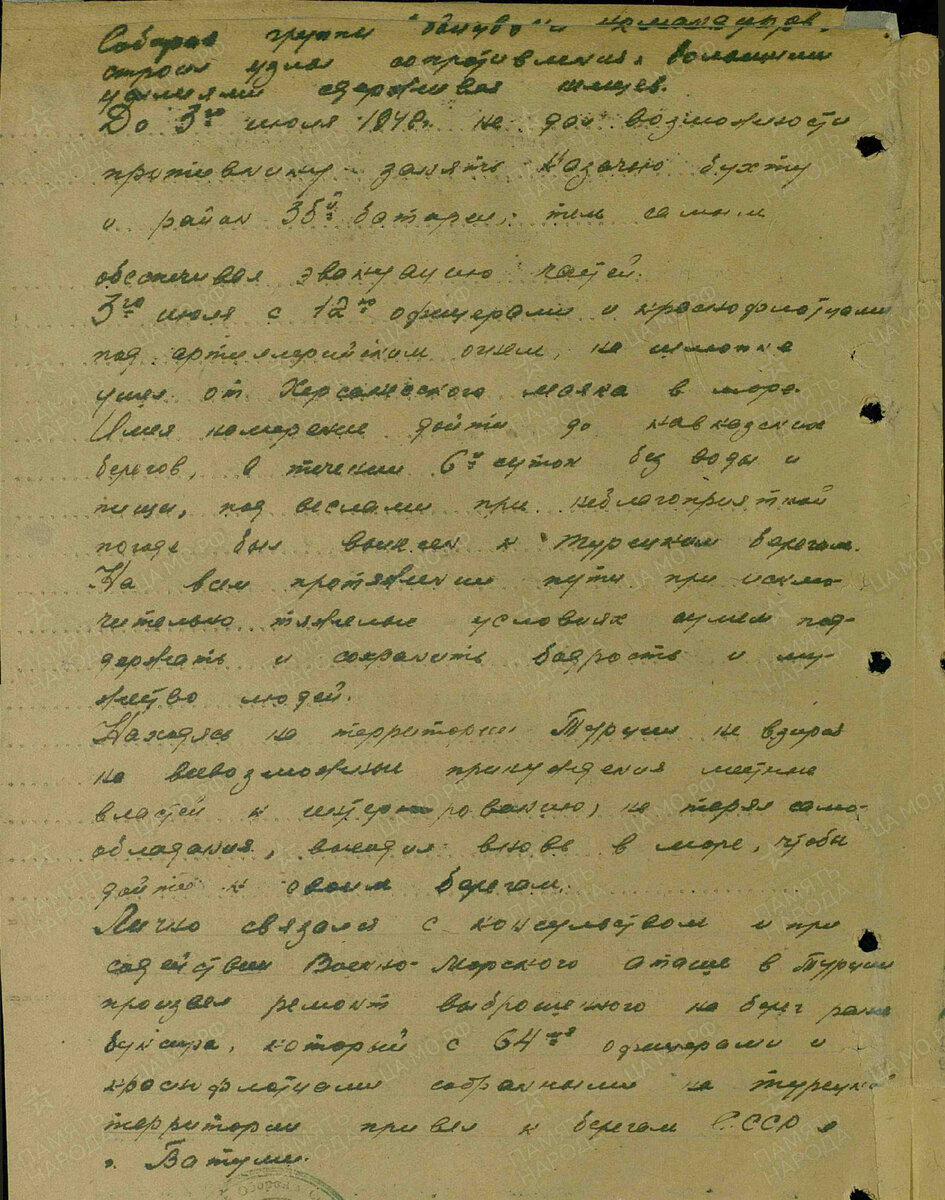 Собирая группы бойцов и командиров
строил узлы сопротивления, большими
усилиями сдерживая немцев.
До 3го июля 1942г. не дал возможности
противнику занять Казачью бухту
и район 35й батареи, тем самым
обеспечивая эвакуацию частей.
3го июля с 12ю офицерами и краснофлотцами
под артиллерийским огнем, на шлюпке
ушел от Херсонесского маяка в море.
Имея намерение дойти до кавказских
берегов, в течении 6и суток без воды и
пищи, под веслами при неблагоприятной
погоде был вынесен к турецким берегам.
На всем протяжении пути при исклю-
чительно тяжелых условиях сумел под-
держать и сохранить бодрость и му-
жество людей.
Находясь на территории Турции не взирая
на всевозможные принуждения местных
властей к интернированию, не теряя само-
обладания, выходил вновь в море, чтобы
дойти к своим берегам.
Лично связался с консульством и при
содействии Военно-Морского аташе в Турции
произвел ремонт выброшенного на берег
буксира, который с 64мя офицерами и
краснофлотцами собранными на турецкой
территории привел к берегам СССР в
г. Батуми.